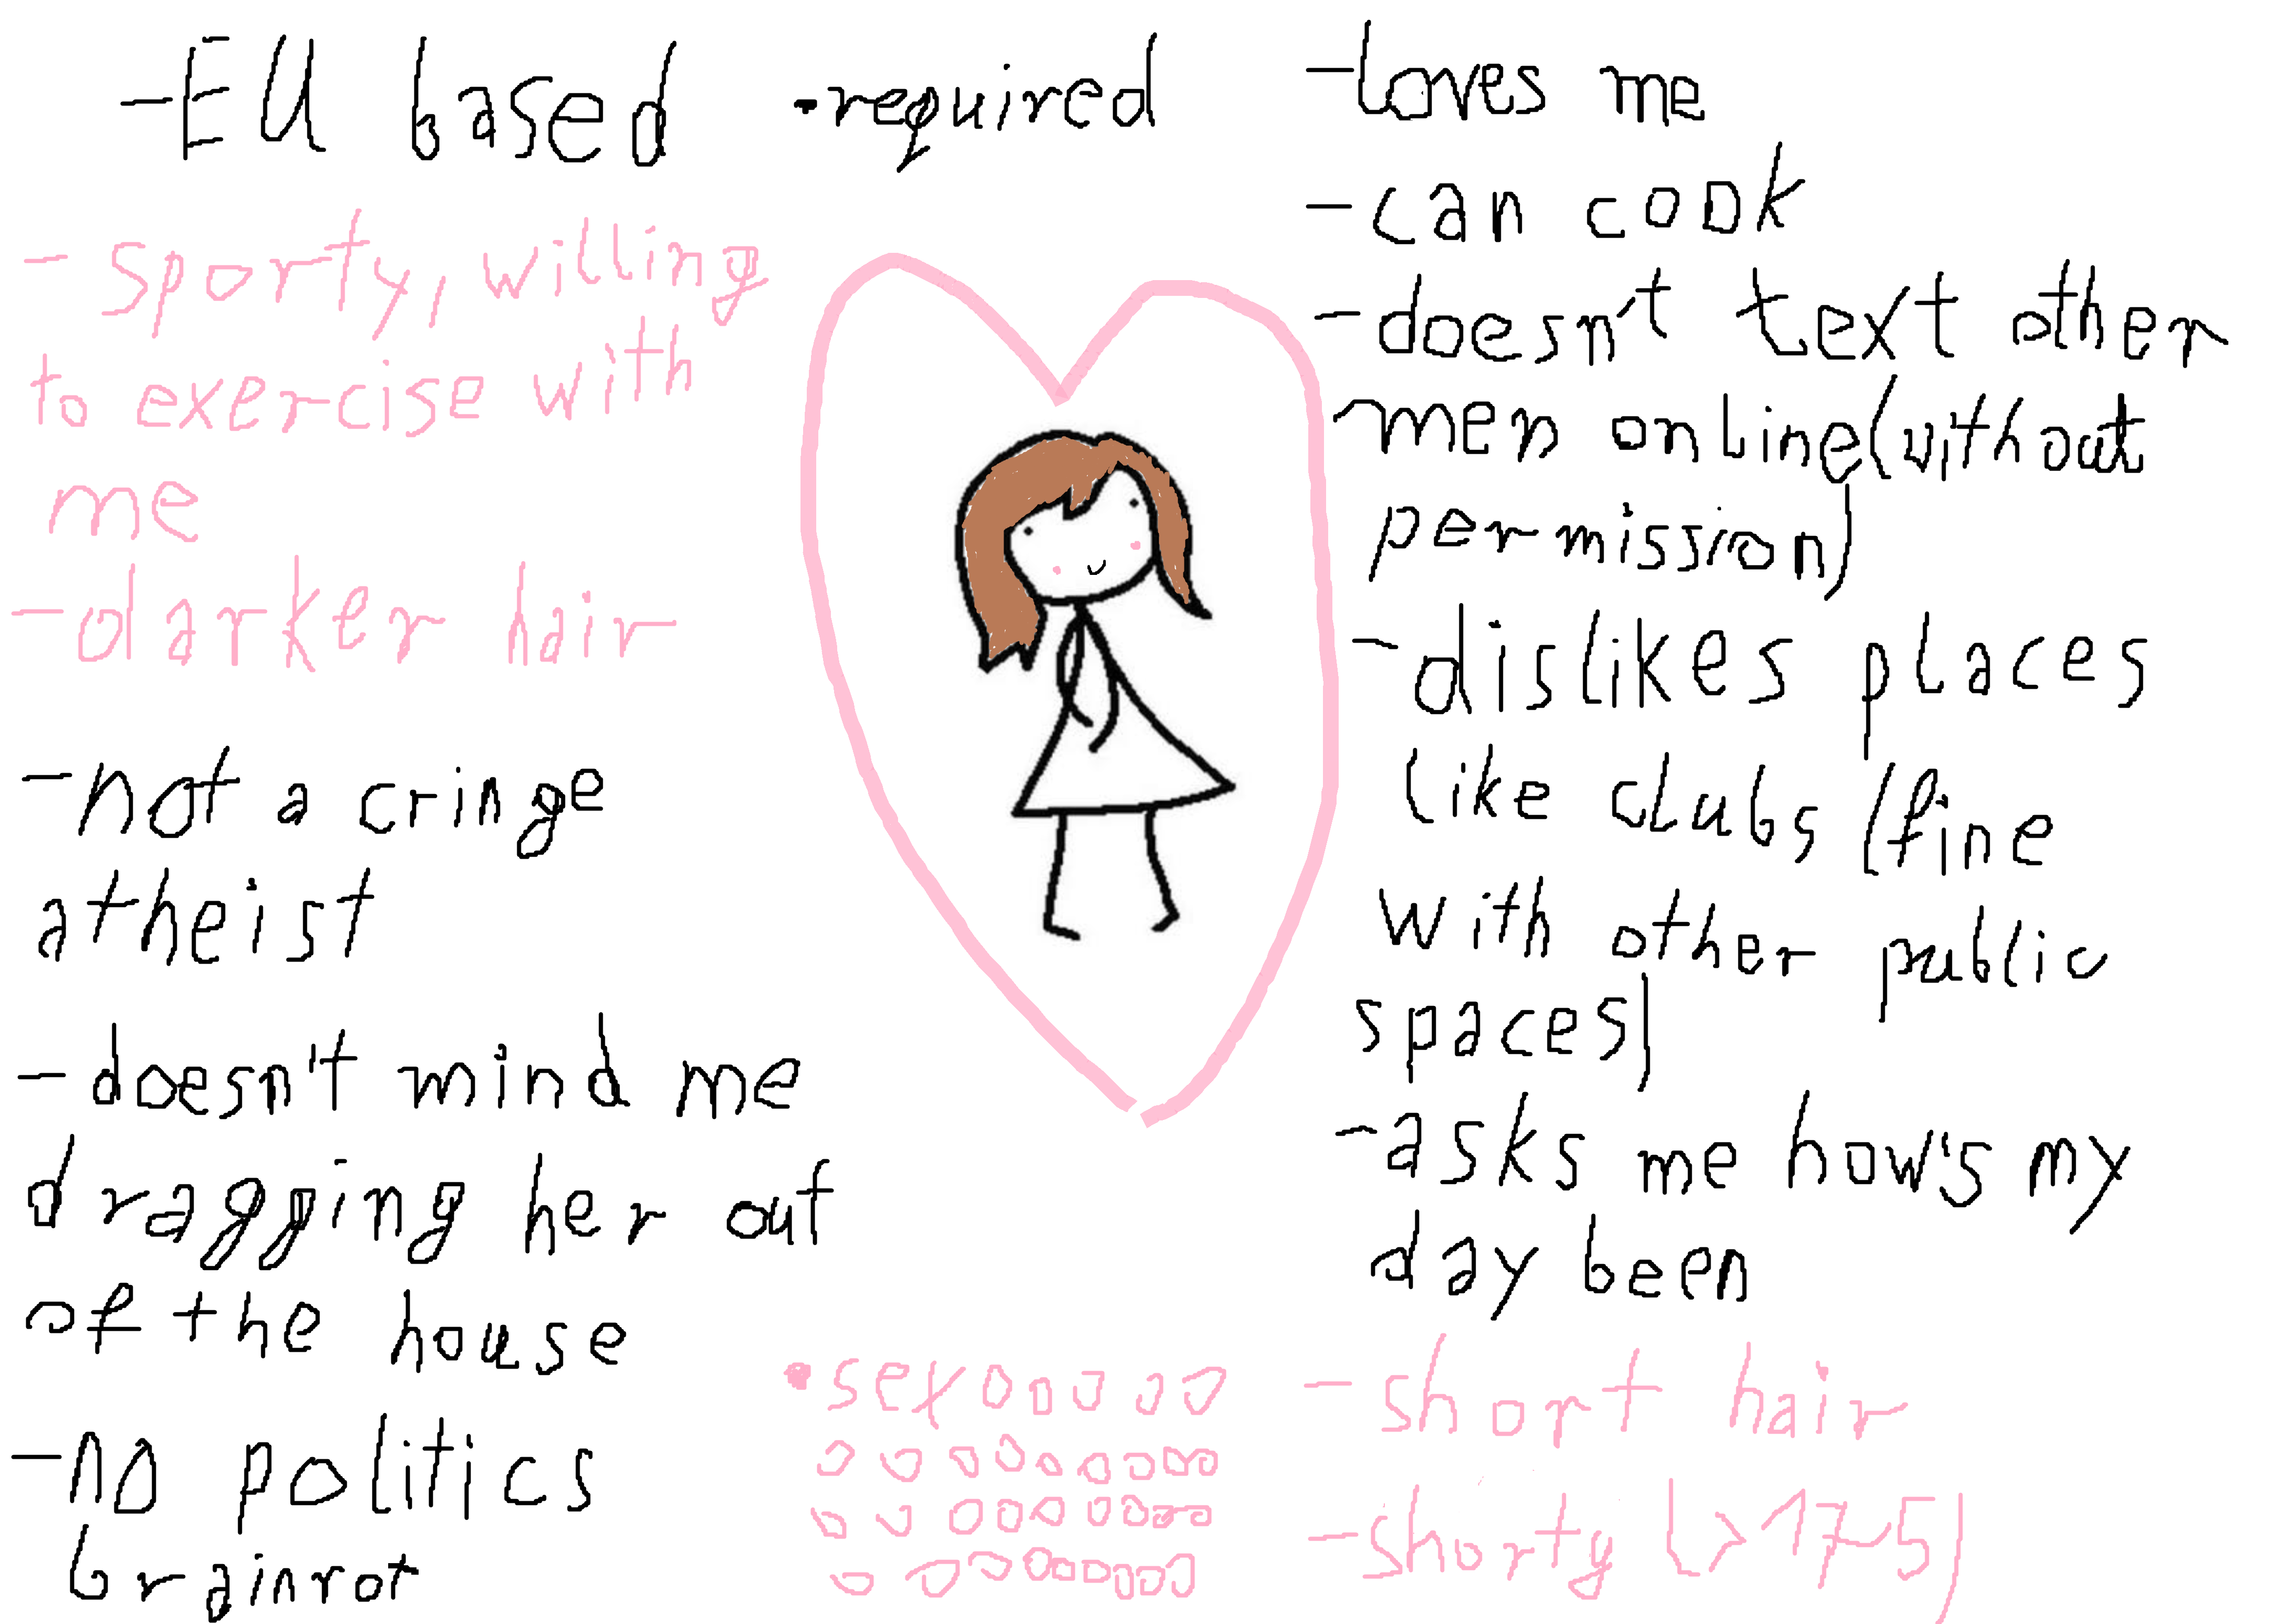 -EU based
•required
-sporty, willing
to exercise with
me
-darker hair
-not a cringe
atheist
-doesn't mind me
dragging her out
of the house
-no politics
brainrot
-loves me
-can cook
-doesn't text other
men online(without
permission)
-dislikes places
like clubs (fine
with other public
spaces)
-asks me how's my
day been
-short hair
-shorty (>175)